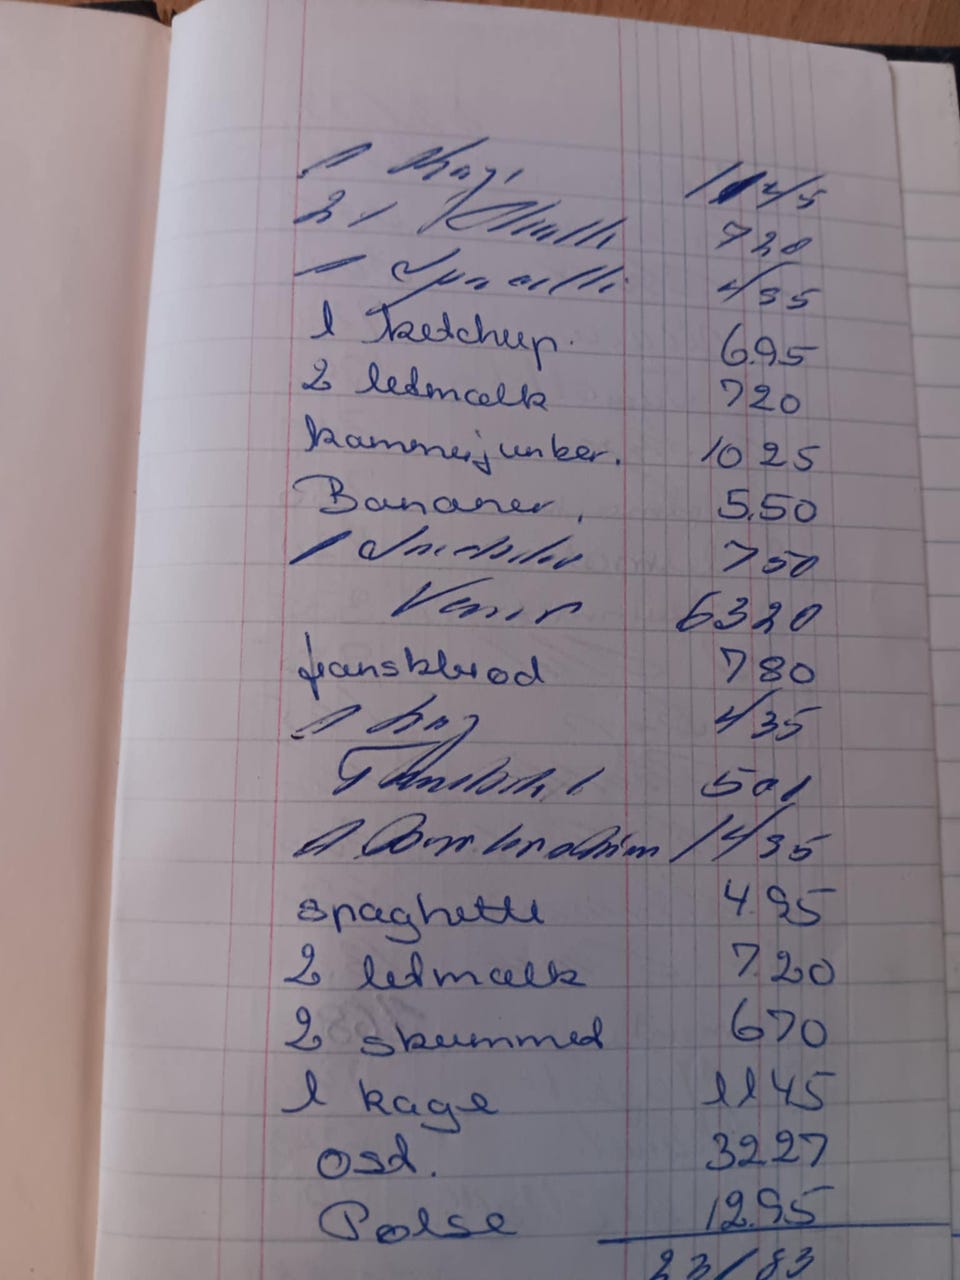 1145
2 720
1 495
1 ketchup. 6.95
2 letmælk 720
kammerjunker. 1025
Bananer. 5.50
1 750
Varer 6320
franskbrød 780
1 435
501
1 1495
spaghetti 4.95
2 letmælk 7.20
2 skummed 670
1 kage 1145
ost. 3227
Pølse 12.95
23183